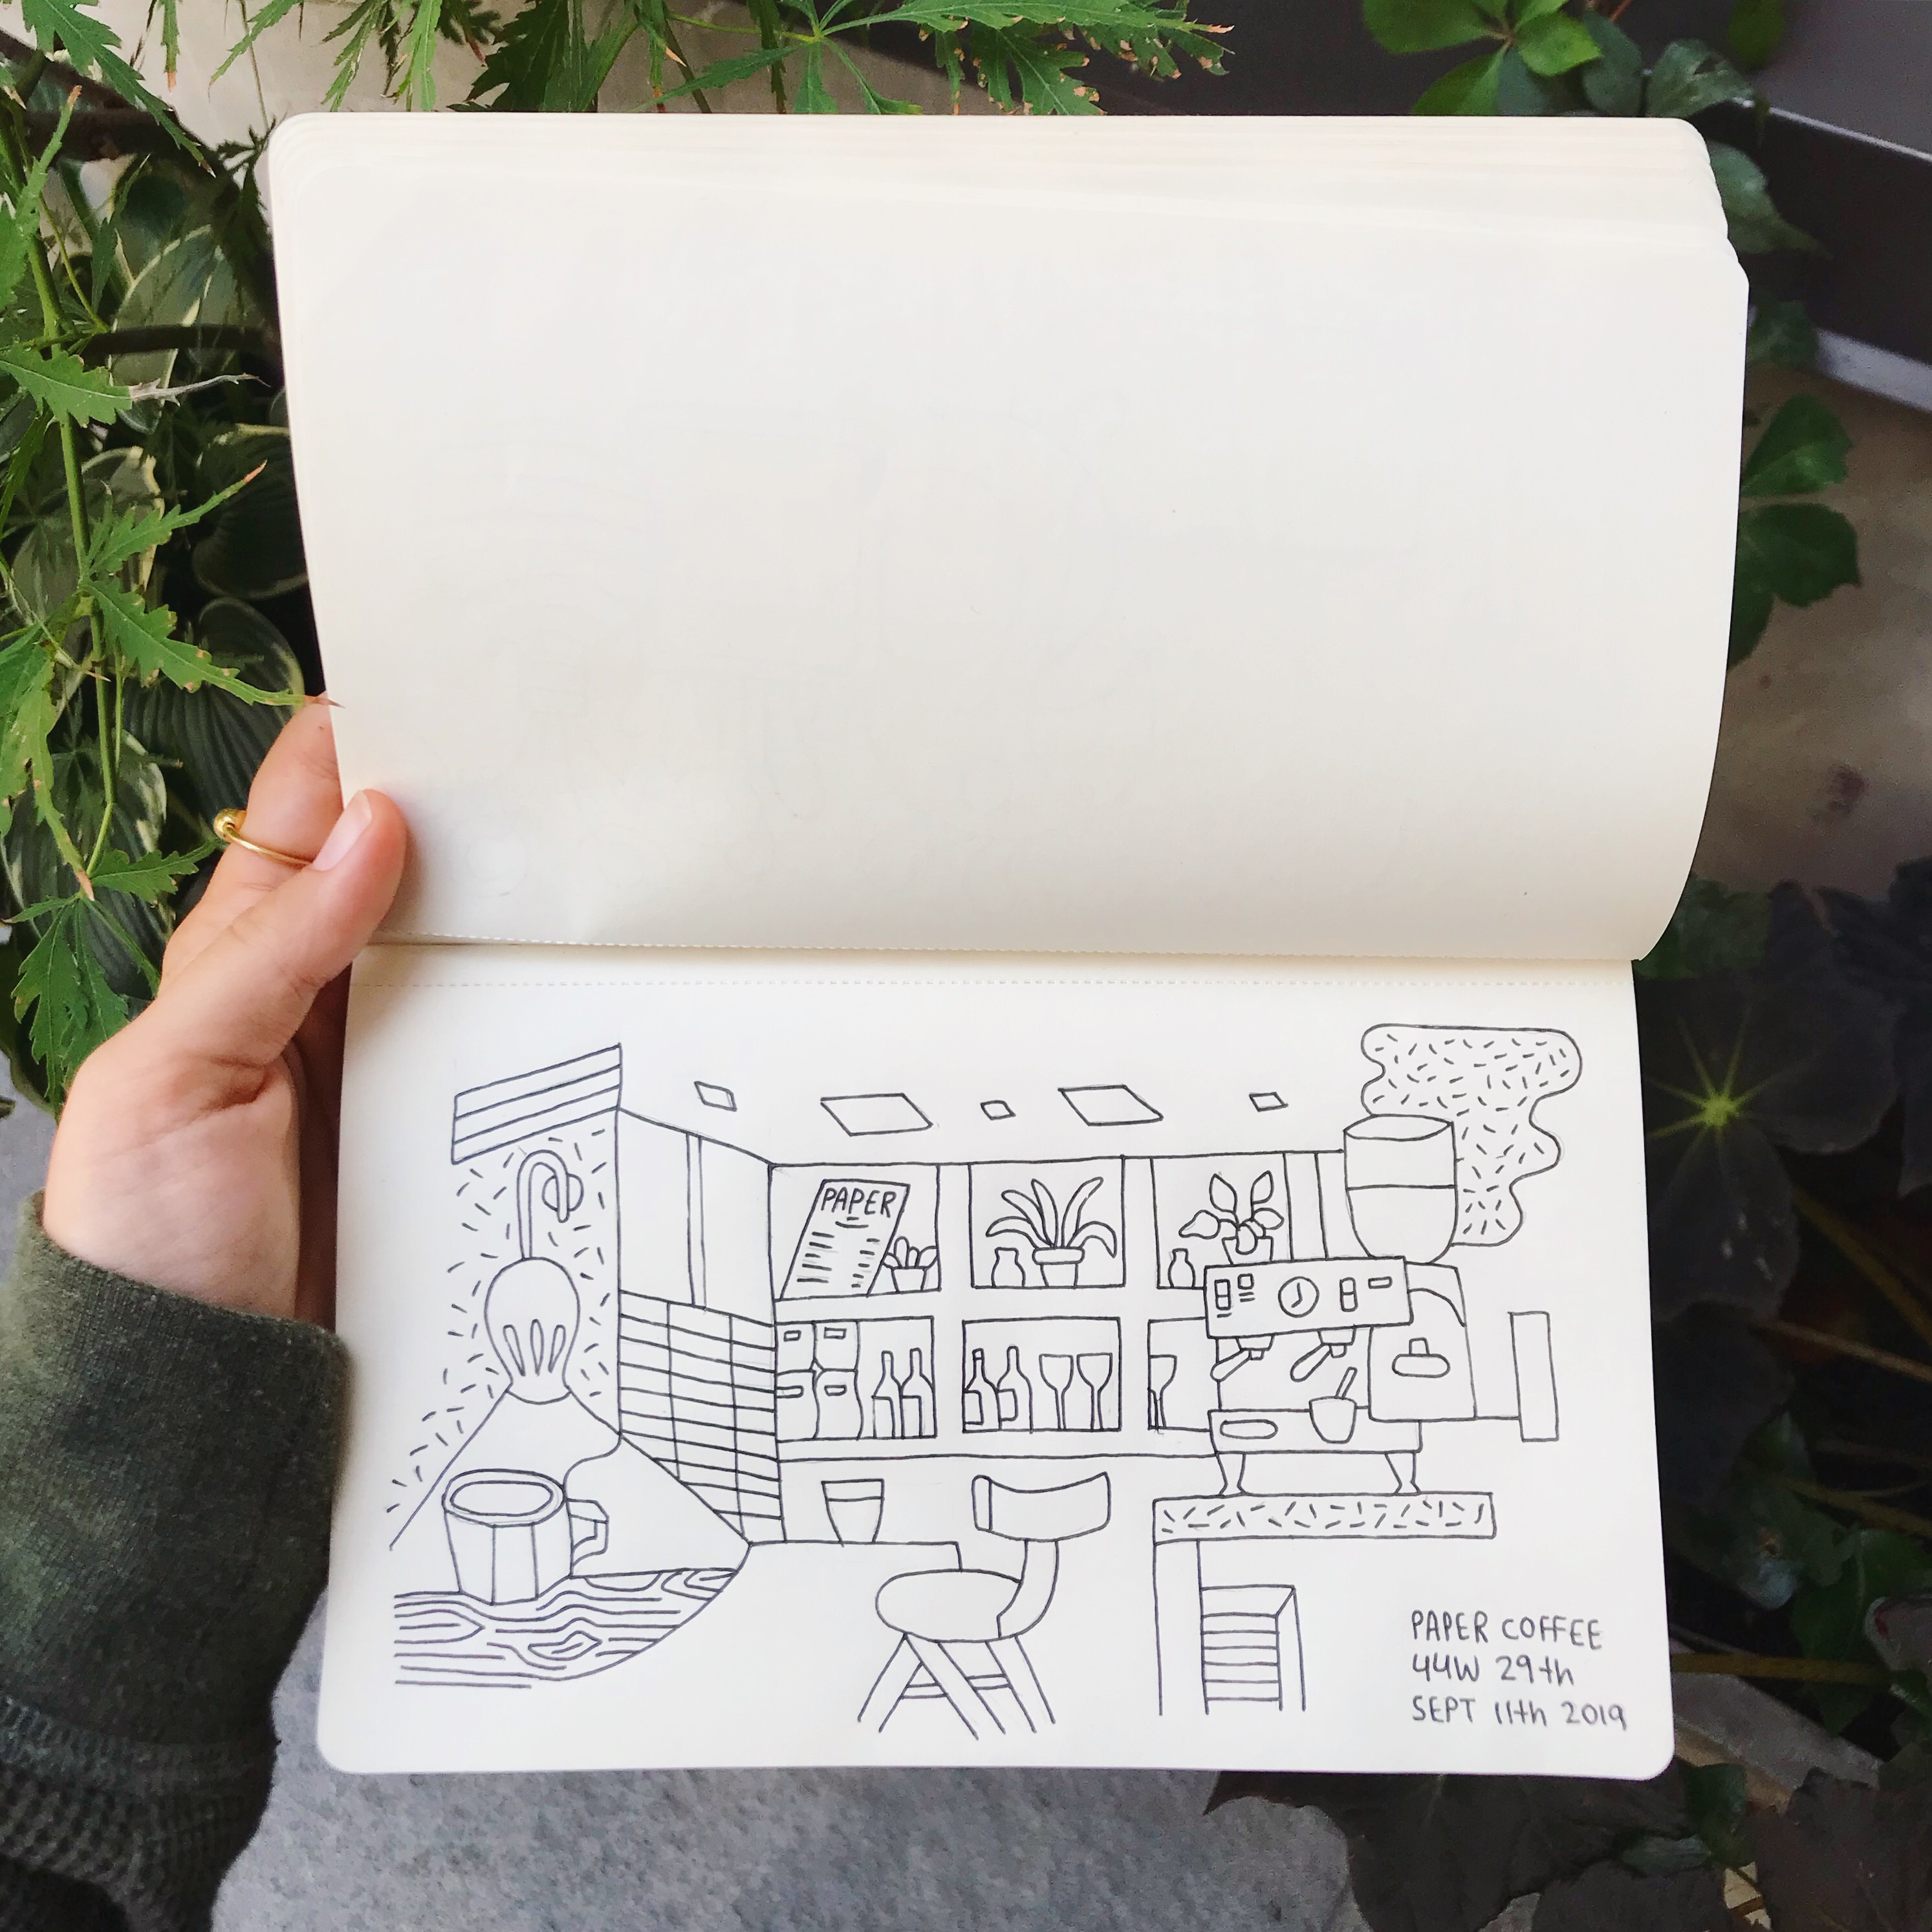 PAPER
PAPER COFFEE
44W 29th
SEPT 11th 2019